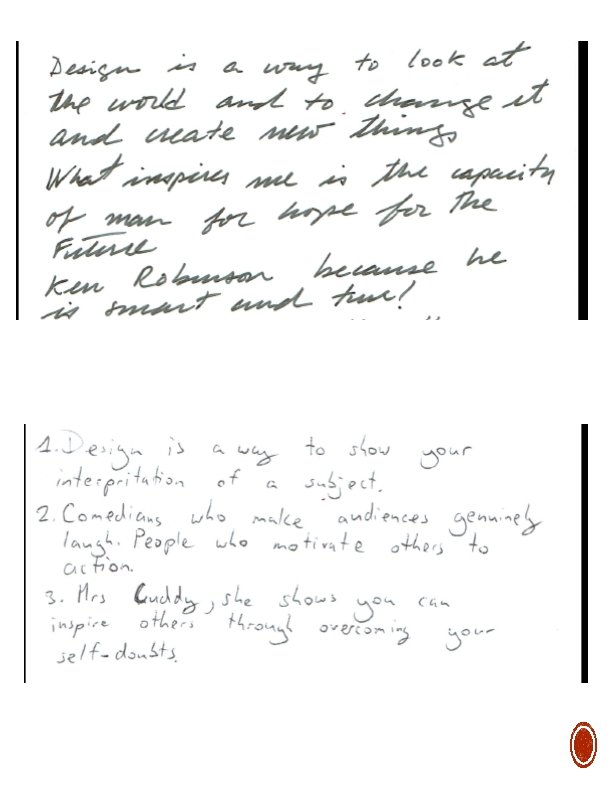 Design is a way to look at
the world and to change it
and create new things
What inspires me is the capacity
of man for hope for the
Future
Ken Robinson because he
is smart and true!
1. Design is a way to show your
interpritation of a subject.
2. Comedians who make audiences genuinely
laugh. People who motivate others to
action.
3. Mrs Cuddy, she shows you can
inspire others through overcoming your
self-doubts.